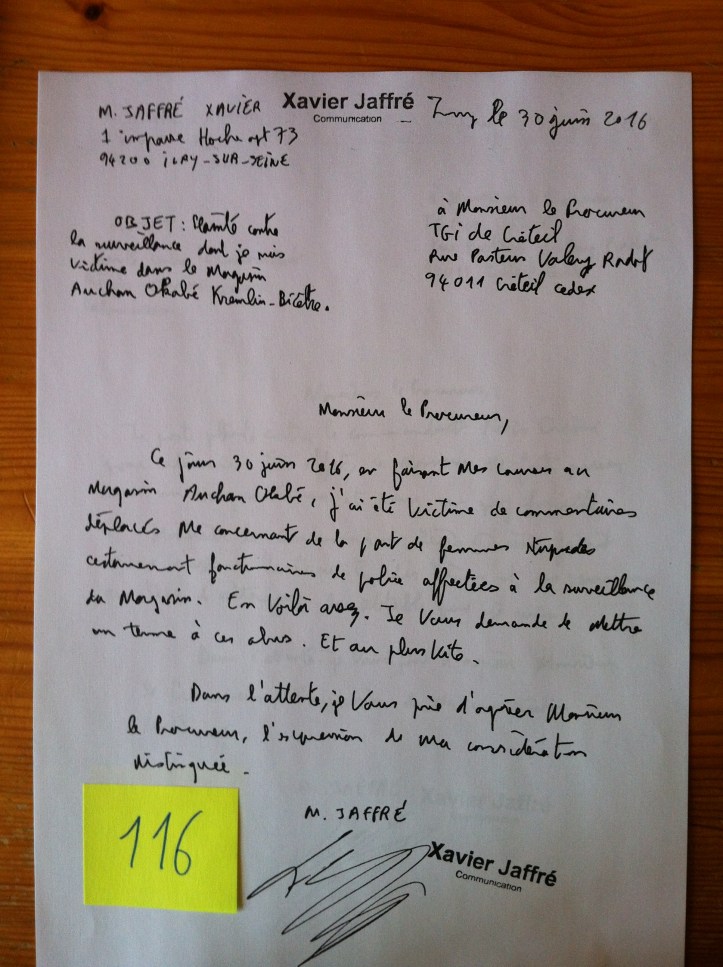 M. JAFFRÉ XAVIER
1 impasse Hoche apt 73
94200 iVRY-SUR-SEiNE
Xavier Jaffré
Communication
Ivry le 30 juin 2016
OBJET: Plainte contre
la surveillance dont je suis
victime dans le Magasin
Auchan Okabé Kremlin-Bicêtre.
à Monsieur le Procureur
TGi de Créteil
Rue Pasteur Valery Radot
94011 Créteil cedex
Monsieur le Procureur,
Ce jour 30 juin 2016, en faisant mes courses au
Magasin Auchan Okabé, j'ai été Victime de commentaires
déplacés me concernant de la part de femmes stupides
certainement fonctionnaires de police affectées à la surveillance
du Magasin. En Voilà assez. Je Vous demande de Mettre
un terme à ces abus. Et au plus Vite.
Dans l'attente, je Vous prie d'agréer Monsieur
le Procureur, l'expression de ma considération
distinguée.
M. JAFFRÉ
Xavier Jaffré
Communication
116